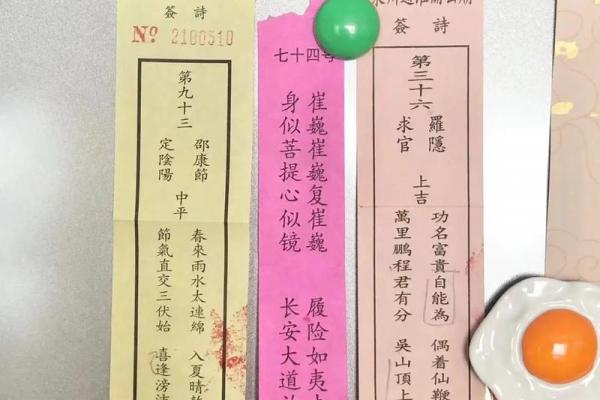 簽詩
Nº 2100510
第九十三
邵康節
定陰陽
中平
春來雨水太連綿
入夏晴乾
節氣直交三伏始
喜逢滂沛
七十四号
崔巍崔巍复崔巍
履险如夷
身似菩提心似镜
长安大道
簽詩
第三十六
羅隱
求官
上吉
功名富貴自能為
偶着仙鞭
萬里鵬程君有分
吳山頂上